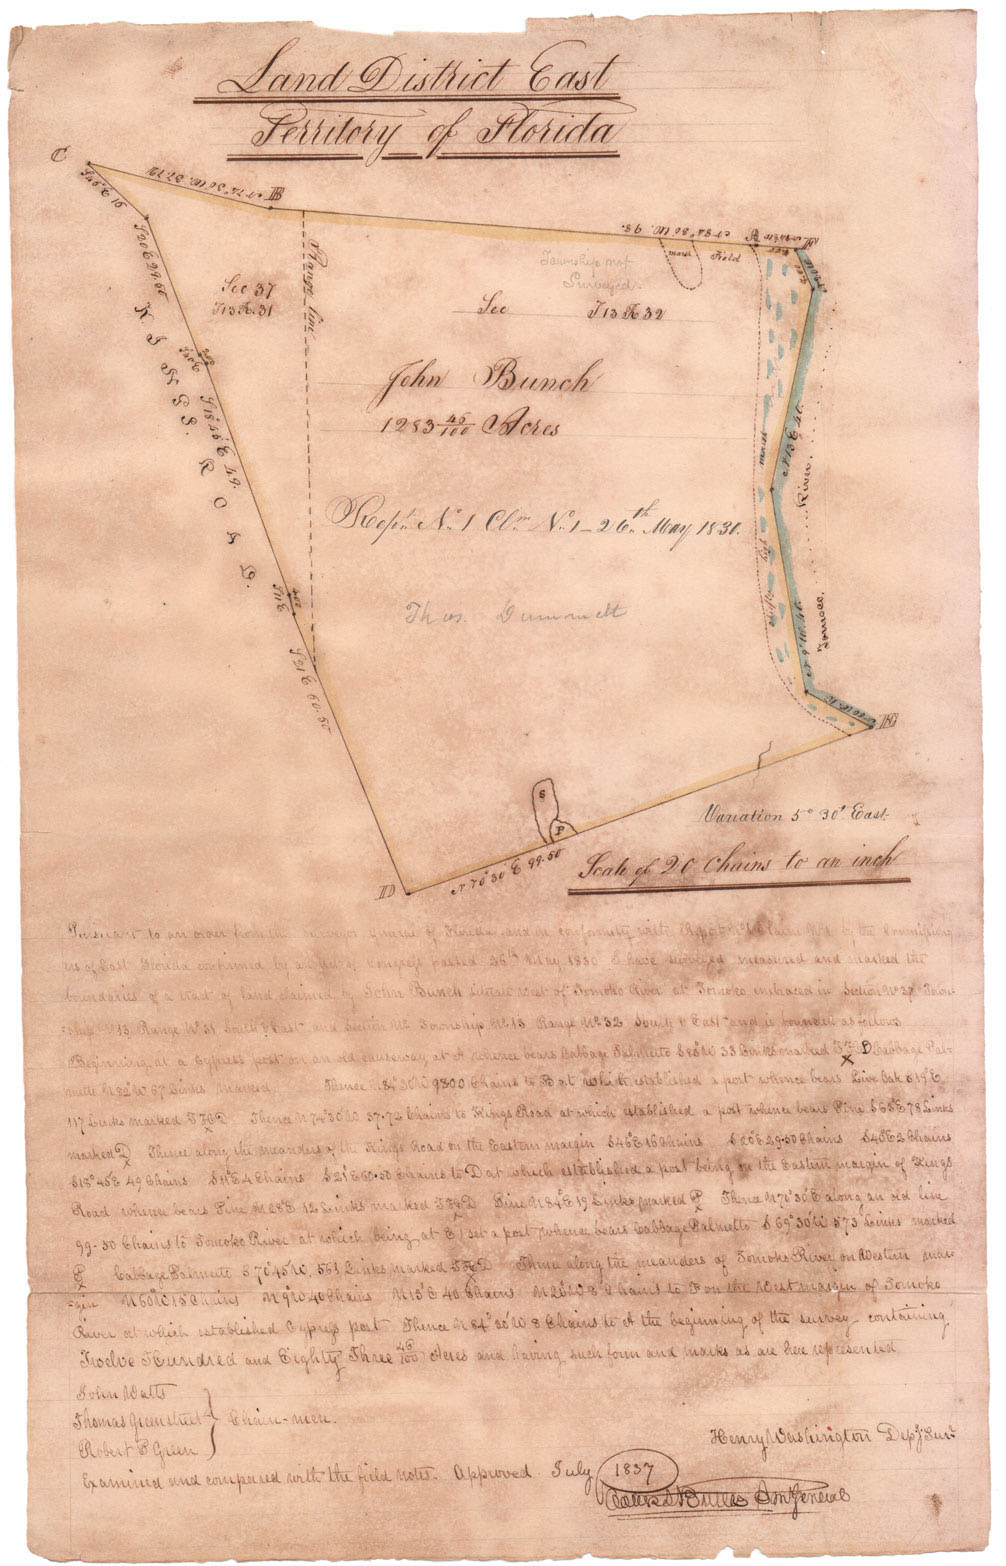 Land District East
Territory of Florida
C
S 46° E 16
N 74° 30' W. 37.72
B
N 84° 30' W. 98.
A
F
marsh
Field
S 20 E 29.50
Range line
Township not
Surveyed.
Sec 37
T 13 R. 31
Sec T 13 R 32
KINGS ROAD.
S 18° 45' E 49.
John Bunch
1283 46/100 Acres
marsh
N 15 E 40.
River.
Rept. No. 1 Clm. No. 1 — 26th May 1830.
high
S 11 E
Thos. Dummett
N 9° W. 40.
Tomoco
S 21 E 60.50
E
S
P
Variation 5° 30' East.
D
N 70° 30' E 99.50
Scale of 20 Chains to an inch
Pursuant to an order from the Surveyor General of Florida and in conformity with Report No 1 Claim No 1 by the Commission-
ers of East Florida confirmed by an Act of Congress passed 26th May 1830 I have surveyed measured and marked the
boundaries of a tract of land claimed by John Bunch situate west of Tomoko River at Tomoko embraced in Section No 37 Town-
ship No 13 Range No 31 South & East and Section No Township No 13 Range No 32 South & East and is bounded as follows
Beginning at a Cypress post on an old causeway at A whence bears Cabbage Palmetto S 25° W 33 Links marked Cabbage Pal-
metto N 32° W 67 Links marked Thence N 84° 30' W 98.00 Chains to B at which established a post whence bears Live Oak S 19° E
117 Links marked Thence N 74° 30' W 37.72 Chains to Kings Road at which established a post whence bears Pine S 65° E 78 Links
marked Thence along the meanders of the Kings Road on the Eastern margin S 46° E 16 Chains S 20° E 29.50 Chains S 40° E 2 Chains
S 18° 45' E 49 Chains S 11° E 4 Chains S 21° E 60.50 Chains to D at which established a post being on the Eastern margin of Kings
Road whence bears Pine N 28° E 12 Links marked Pine N 84° E 19 Links marked Thence N 70° 30' E along an old line
99.50 Chains to Tomoko River at which being at E) set a post whence bears Cabbage Palmetto S 69° 30' W 573 Links marked
Cabbage Palmetto S 70° 45' W. 561 Links marked Thence along the meanders of Tomoko River on Western mar-
gin N 60° W 15 Chains N 9° W 40 Chains N 15° E 40 Chains N 28° W 8 Chains to F on the West margin of Tomoko
River at which established Cypress post Thence N 84° 30' W 8 Chains to A the beginning of the survey containing
Twelve Hundred and Eighty Three 46/100 Acres and having such form and marks as are here represented
John Watts
Thomas Greenstreet } Chain-men.
Robert P Green
Henry Washington Depy Surv.
Examined and compared with the field notes. Approved July 1837
Surv General